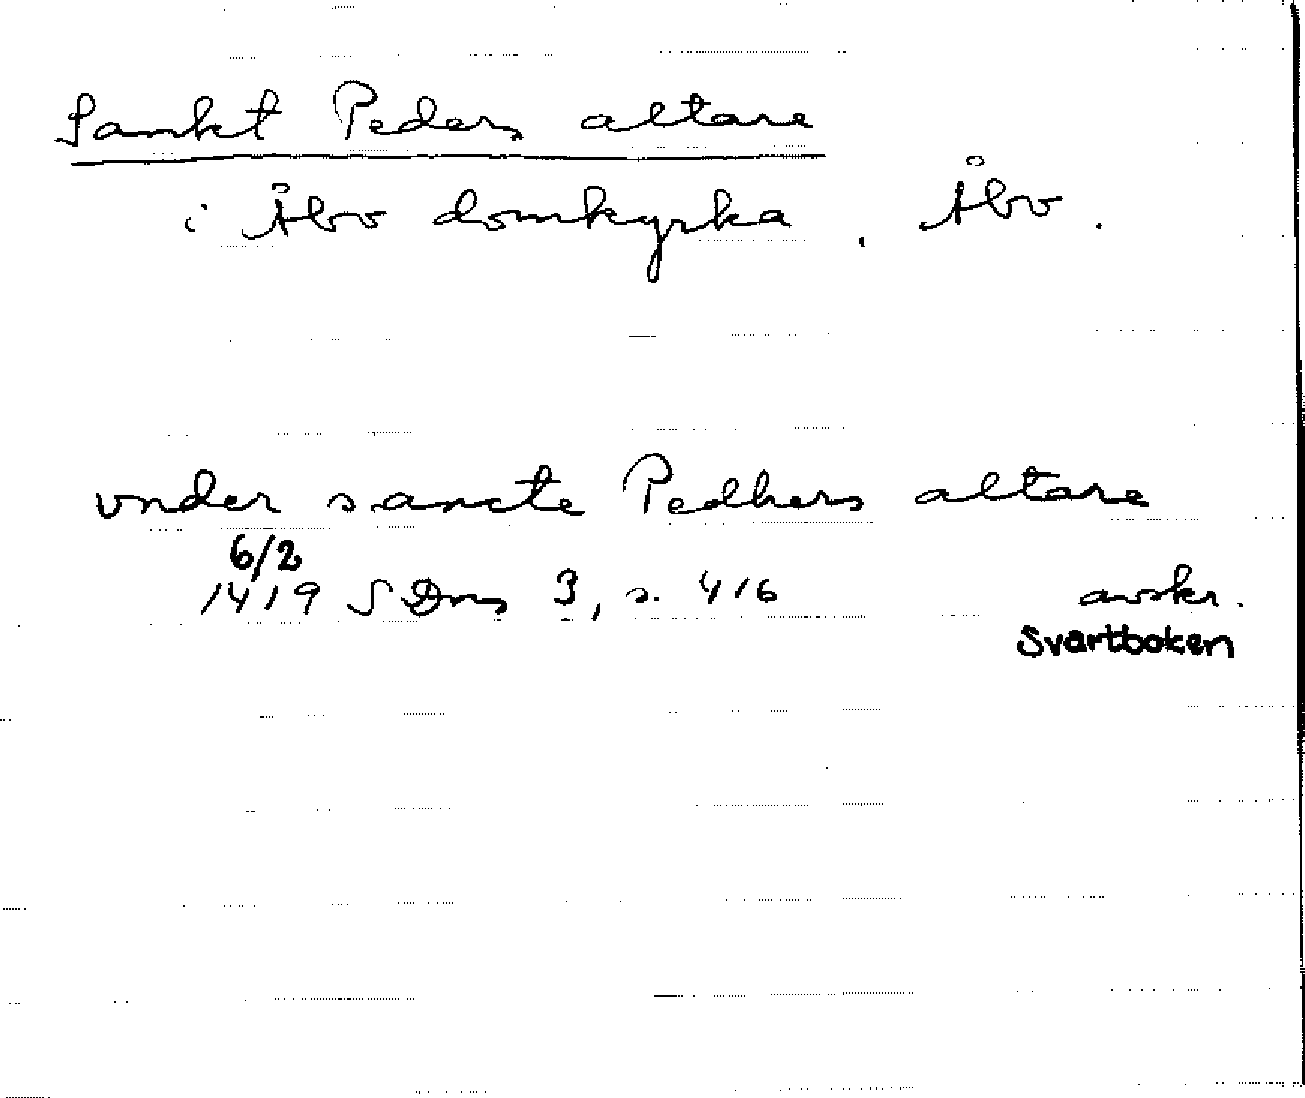 Sankt Peders altare
i Åbo domkyrka. Åbo.
vnder sancte Pedhers altare
6/2
1419 SDns 3, s. 416 avskr.
Svartboken